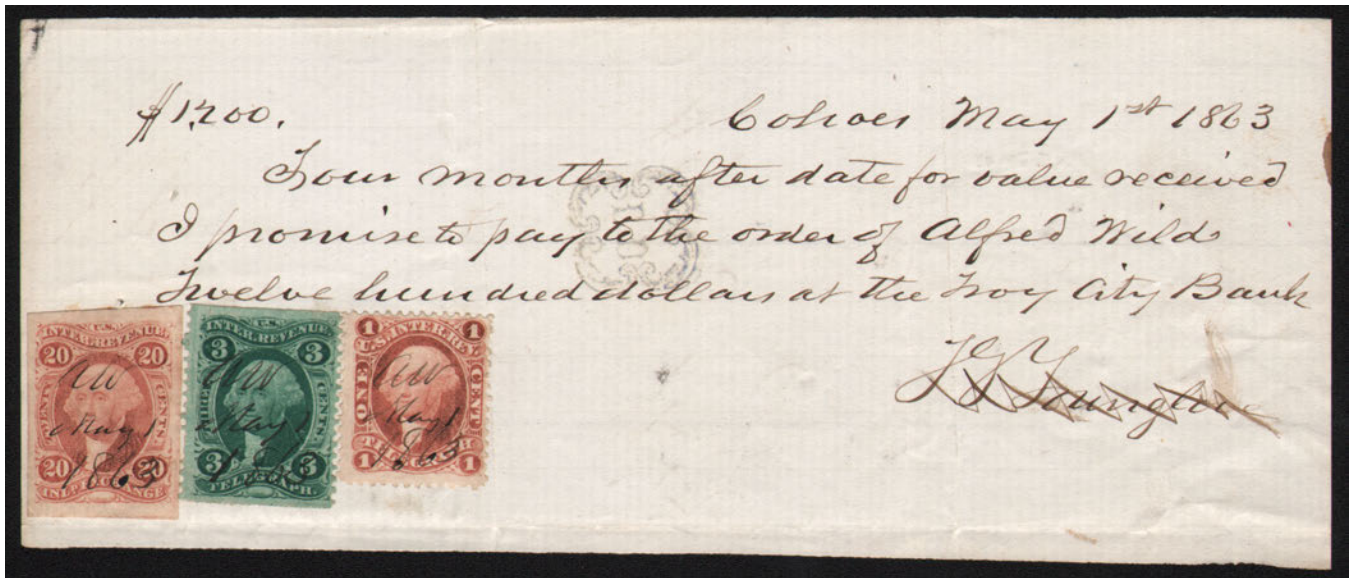 $1200.
Cohoes May 1st 1863
Four months after date for value received
I promise to pay to the order of Alfred Wild
Twelve hundred dollars at the Troy City Bank
U.S.
INTER. REVENUE
20 20
TWENTY CENTS.
AW
May 1
1863
20 20
INLD EXCHANGE
U.S.
INTER. REVENUE
3 3
THREE CENTS.
AW
May 1
1863
3 3
TELEGRAPH.
1 1
U.S. INTER. REV.
ONE CENT.
AW
May 1
1863
1 1
TELEGRAPH